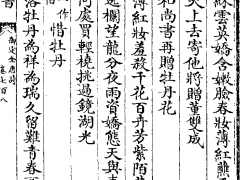 綵雲英嬌含嫩臉春妝薄紅蘸
天上去寄他將贈董雙成
和尚書再贈牡丹花
薄紅妝羞殺千花百卉芳紫陌
遶欄望龍分夜雨資嬌態天與
何處買輕橈挑過鏡湖光
作惜牡丹
落牡丹為祥為瑞久留難青春
御定全唐詩
卷七百八